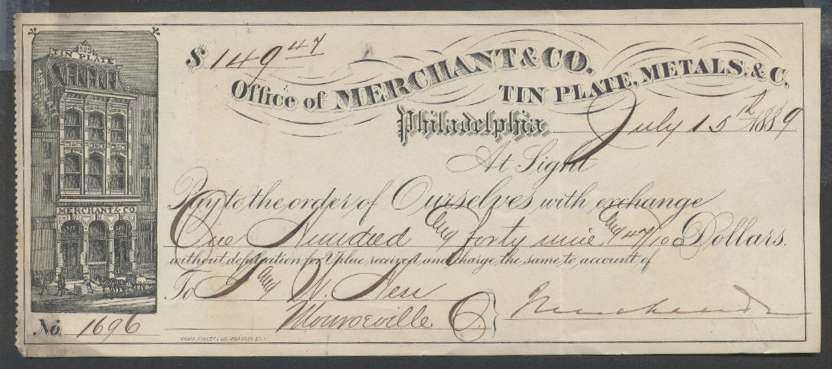 TIN PLATE
$149 47
Office of MERCHANT & CO.
TIN PLATE, METALS. & C.
Philadelphia July 15th 1889
At Sight
Pay to the order of Ourselves with exchange
One Hundred and forty nine and 47/100 Dollars.
without defalcation for Value received and charge the same to account of
MERCHANT & CO.
To W. Hess
Monroeville O.
No. 1696